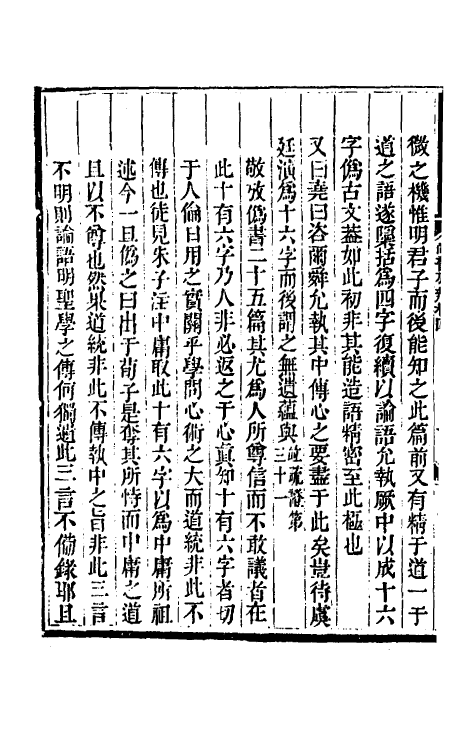 微之機惟明君子而後能知之此篇前又有精于道一于
道之語遂隱括為四字復續以論語允執厥中以成十六
字偽古文葢如此初非其能造語精密至此極也
又曰堯曰咨爾舜允執其中傳心之要盡于此矣豈待虞
廷演為十六字而後謂之無遺蘊與此疏證第三十一
敬攷偽書二十五篇其尤為人所尊信而不敢議者在
此十有六字乃人非必返之于心真知十有六字者切
于人倫日用之實關乎學問心術之大而道統非此不
傳也徒見朱子注中庸取此十有六字以為中庸所祖
述今一旦偽之曰出于荀子是奪其所恃而中庸之道
且以不尊也然果道統非此不傳執中之旨非此三言
不明則論語明聖學之傳何獨遺此三言不備錄耶且